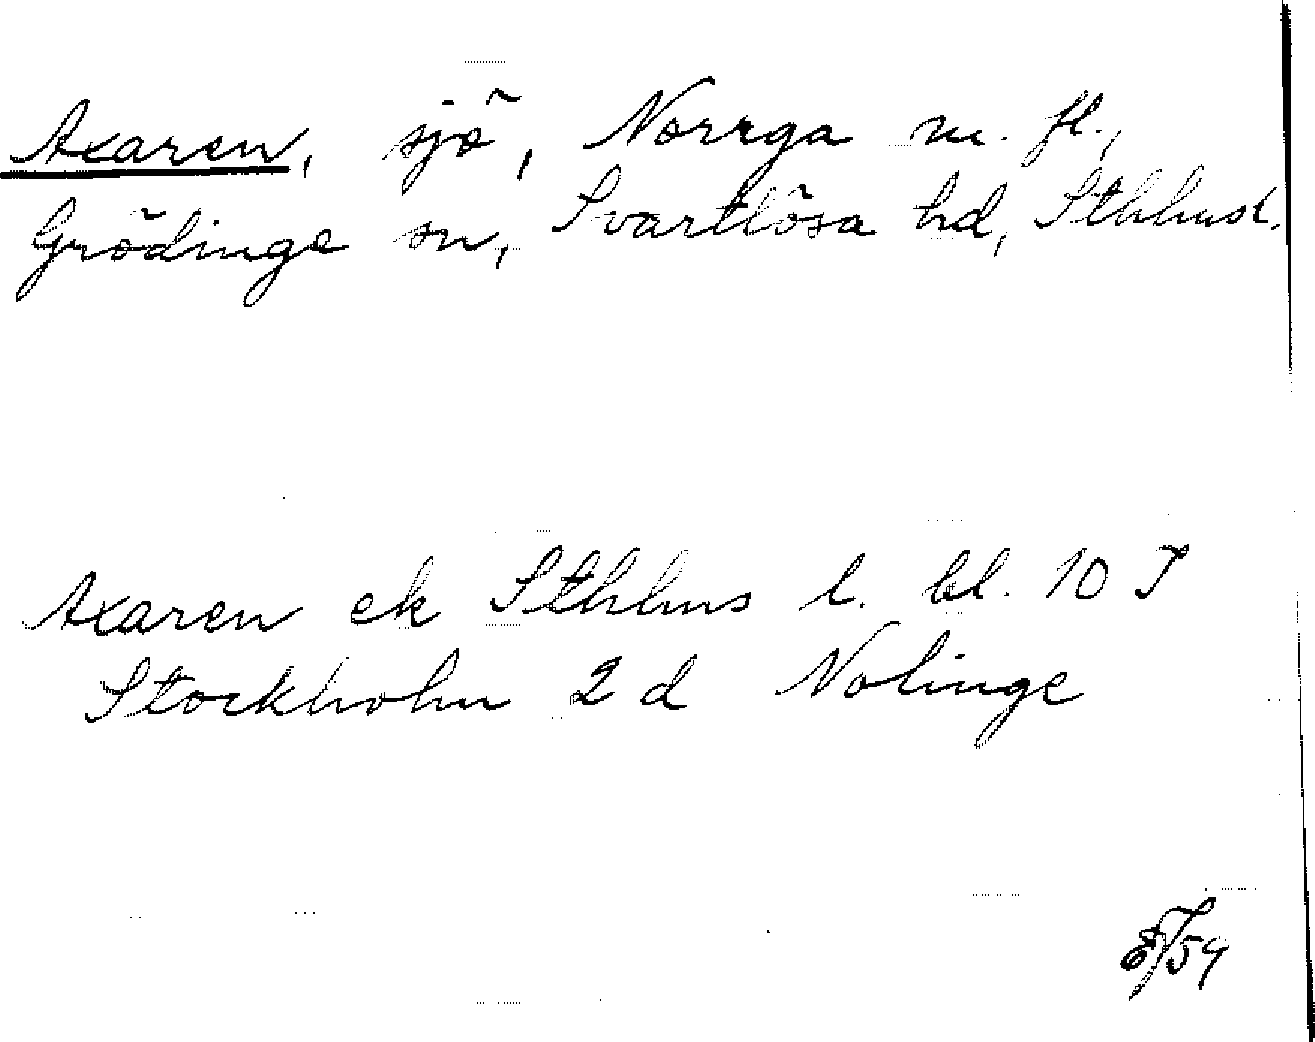 Axaren, sjö, Norrga m. fl.,
Grödinge sn, Svartlösa hd, Sthlmsl.
Axaren ek Sthlms l. bl. 10 J
Stockholm 2 d Nolinge
/59